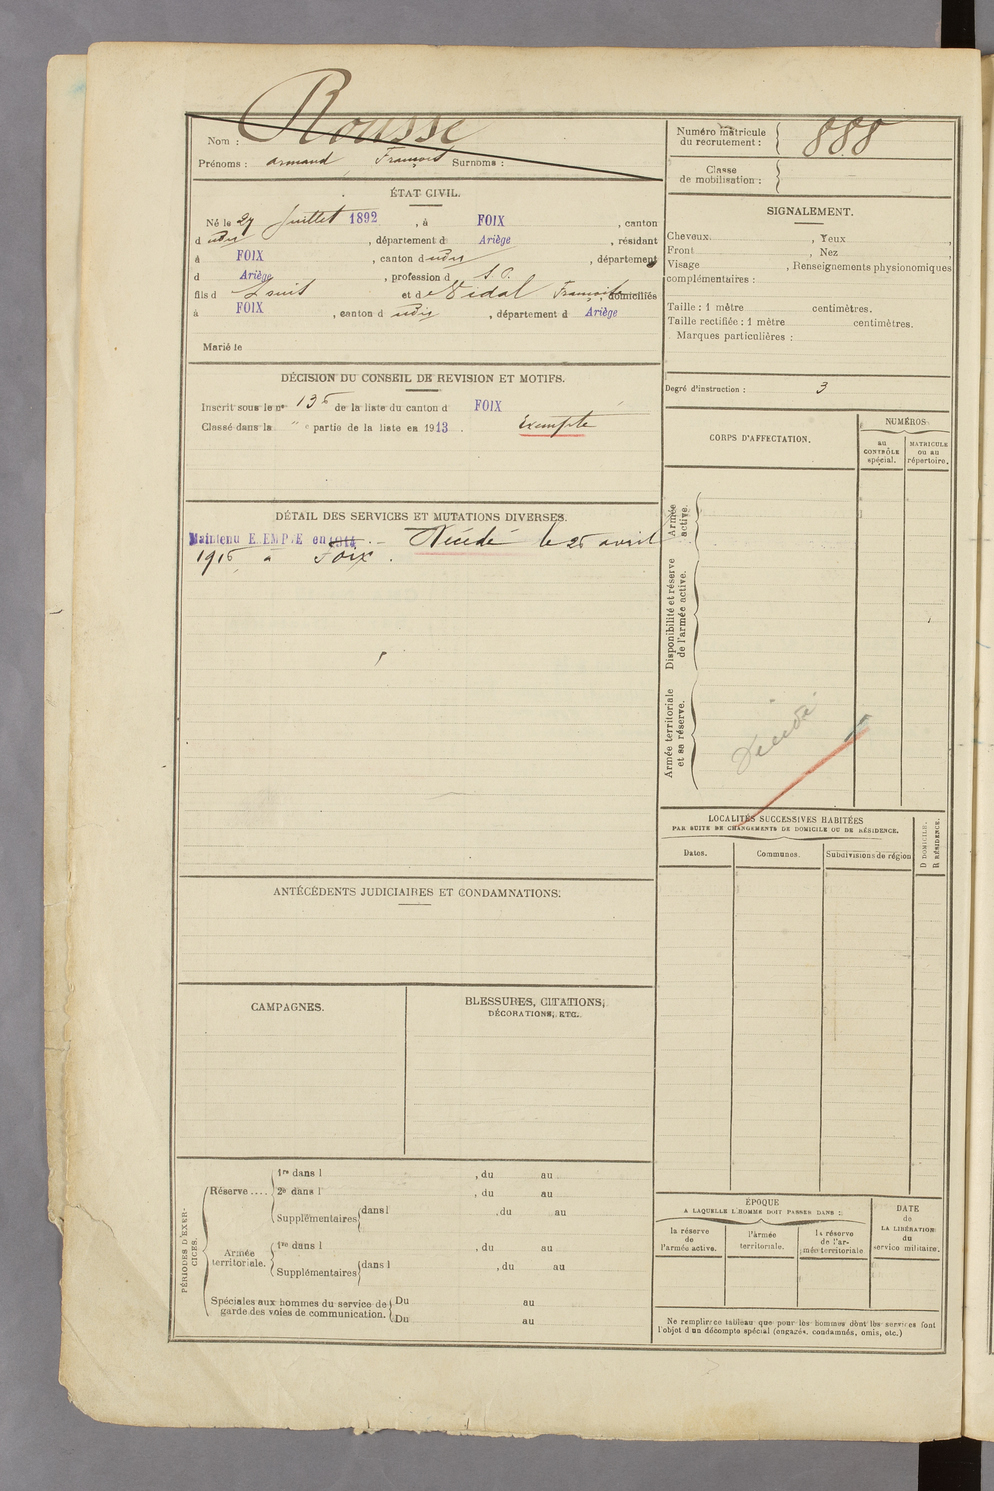 Nom : Rousse
Prénoms : Armand François Surnoms :
Numéro matricule du recrutement : 888
Classe de mobilisation :
ÉTAT CIVIL.
Né le 27 Juillet 1892, à FOIX, canton
d udit, département d Ariège, résidant
à FOIX, canton dudit, département
d Ariège, profession d S.P.
fils d et de Vidal Françoise, domiciliés
à FOIX, canton d udit, département d Ariège
Marié le
SIGNALEMENT.
Cheveux , Yeux ,
Front , Nez ,
Visage , Renseignements physionomiques
complémentaires :
Taille : 1 mètre centimètres.
Taille rectifiée : 1 mètre centimètres.
Marques particulières :
Degré d'instruction : 3
DÉCISION DU CONSEIL DE REVISION ET MOTIFS.
Inscrit sous le nº de la liste du canton d FOIX
Classé dans la " e partie de la liste en 1913. Exempté
DÉTAIL DES SERVICES ET MUTATIONS DIVERSES.
Maintenu EXEMPTE en 1914 .- Décédé le 25 avril
1915 à Foix.
CORPS D'AFFECTATION.
NUMÉROS
au CONTRÔLE spécial.
MATRICULE ou au répertoire.
Armée active.
Disponibilité et réserve de l'armée active.
Armée territoriale et sa réserve.
Décédé
LOCALITÉS SUCCESSIVES HABITÉES
PAR SUITE DE CHANGEMENTS DE DOMICILE OU DE RÉSIDENCE.
Dates.
Communes.
Subdivisions de région
D DOMICILE.
R RÉSIDENCE.
ANTÉCÉDENTS JUDICIAIRES ET CONDAMNATIONS.
CAMPAGNES.
BLESSURES, CITATIONS,
DÉCORATIONS, ETC.
PÉRIODES D'EXERCICES.
Réserve....
1re dans l , du au
2e dans l , du au
Supplémentaires dans l , du au
Armée territoriale.
1re dans l , du au
Supplémentaires dans l , du au
Spéciales aux hommes du service de garde des voies de communication.
Du au
Du au
ÉPOQUE
A LAQUELLE L'HOMME DOIT PASSER DANS :
la réserve de l'armée active.
l'armée territoriale.
la réserve de l'armée territoriale
DATE de LA LIBÉRATION du service militaire.
Ne remplir ce tableau que pour les hommes dont les services font
l'objet d'un décompte spécial (engagés, condamnés, omis, etc.)